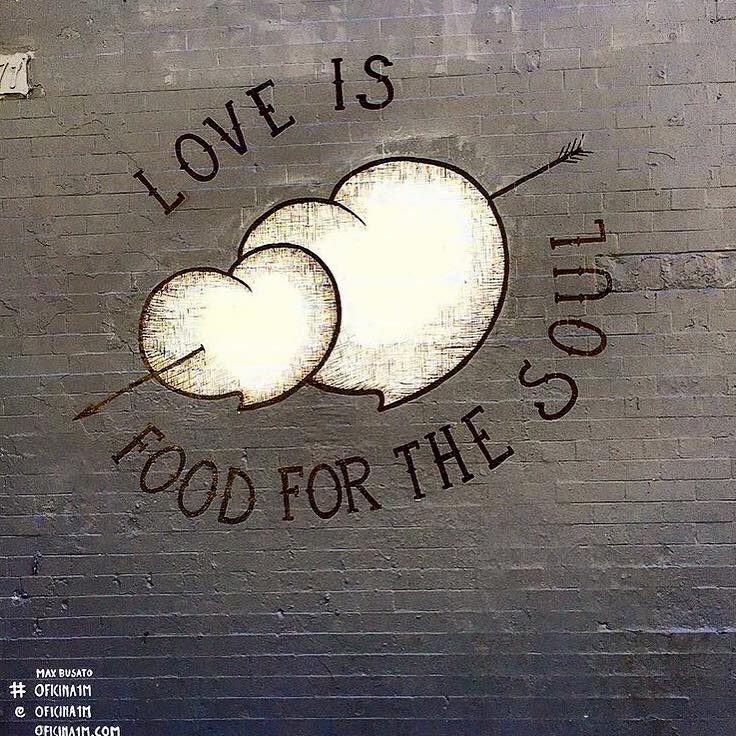 LOVE IS
FOOD FOR THE SOUL
MAX BUSATO
# OFICINA1M
@ OFICINA1M
OFICINA1M.COM